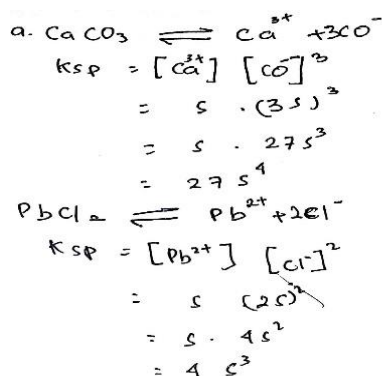 a. CaCO₃ ⇌ Ca³⁺ + 3CO⁻
Ksp = [Ca³⁺] [CO⁻]³
= s . (3s)³
= s . 27s³
= 27 s⁴
PbCl₂ ⇌ Pb²⁺ + 2Cl⁻
Ksp = [Pb²⁺] [Cl⁻]²
= s (2s)²
= s . 4s²
= 4 s³